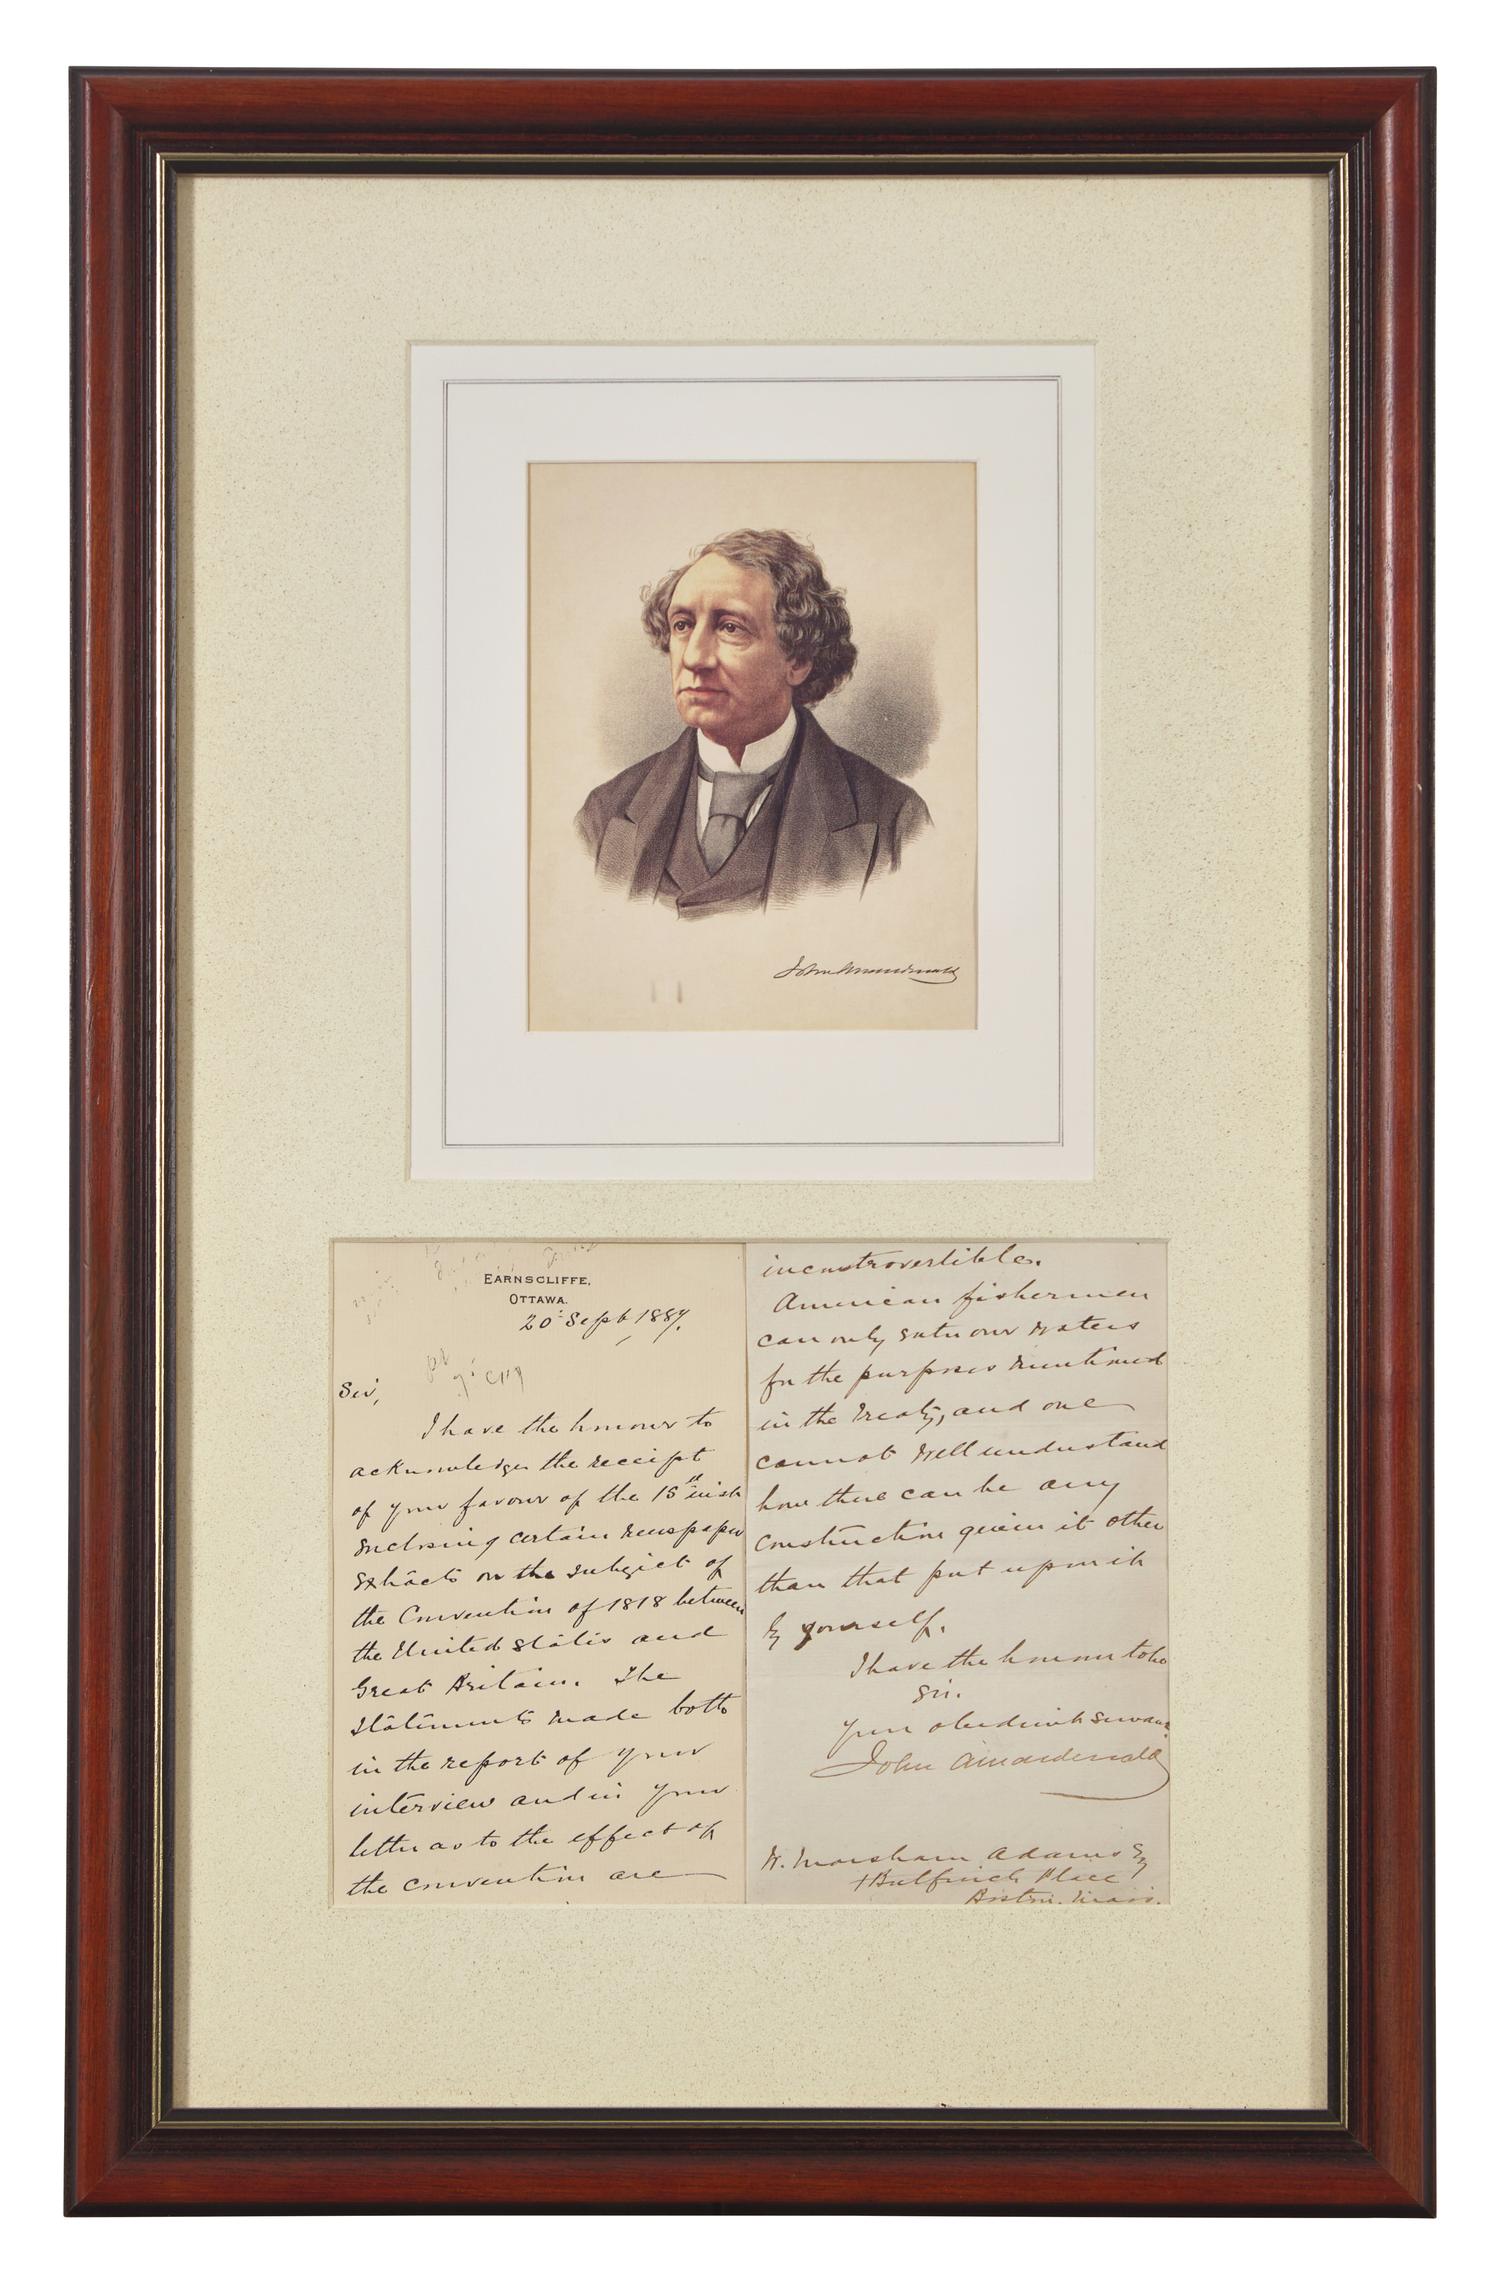 John A Macdonald
EARNSCLIFFE,
OTTAWA.
20: Sept 1887.
Sir,
I have the honour to
acknowledge the receipt
of your favour of the 15th inst
enclosing certain newspaper
extracts on the subject of
the Convention of 1818 between
the United States and
Great Britain. The
statements made both
in the report of your
interview and in your
letter as to the effect of
the convention are
incontrovertible.
American fishermen
can only enter our waters
for the purposes mentioned
in the Treaty, and one
cannot well understand
how there can be any
construction given it other
than that put upon it
by yourself.
I have the honour to be
Sir.
Your obedient servant
John A Macdonald
W. Marsham Adams Esq
Bulfinch Place
Boston. Mass.